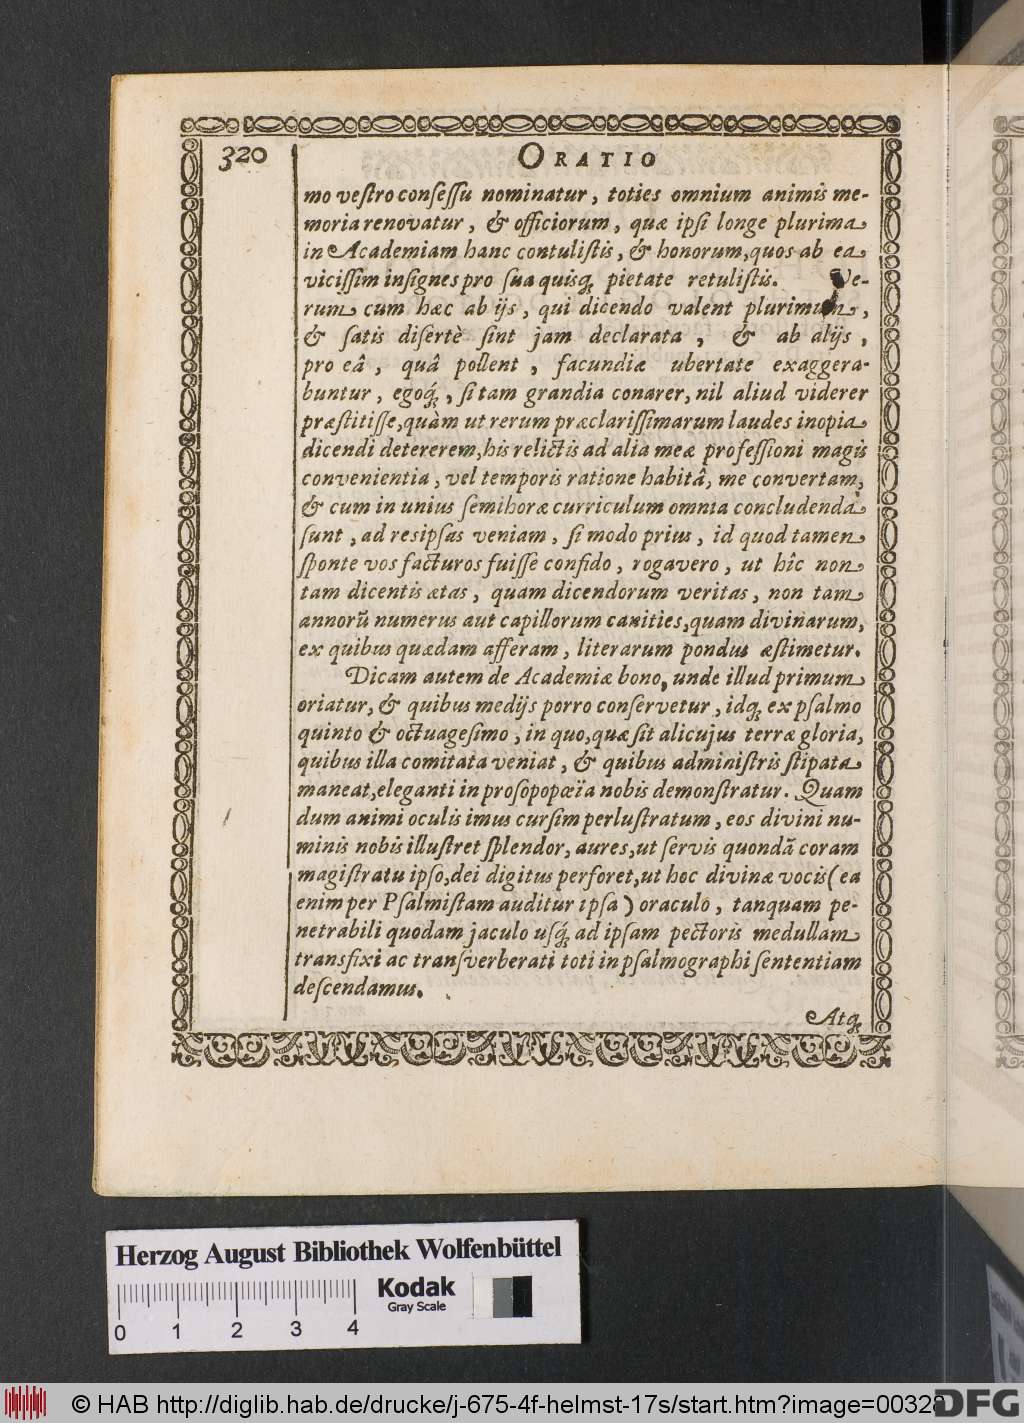 320
ORATIO
mo vestro consessu nominatur, toties omnium animis me-
moria renovatur, & officiorum, quæ ipsi longe plurima
in Academiam hanc contulistis, & honorum, quos ab ea
vicissim insignes pro sua quisq; pietate retulistis. Ve-
rum cum hæc ab ijs, qui dicendo valent plurimum,
& satis disertè sint jam declarata, & ab alijs,
pro eâ, quâ pollent, facundiæ ubertate exaggera-
buntur, egoq́;, si tam grandia conarer, nil aliud viderer
præstitisse, quàm ut rerum præclarissimarum laudes inopia
dicendi detererem, his relictis ad alia meæ professioni magis
convenientia, vel temporis ratione habitâ, me convertam,
& cum in unius semihoræ curriculum omnia concludenda
sunt, ad res ipsas veniam, si modo prius, id quod tamen
sponte vos facturos fuisse confido, rogavero, ut hîc non
tam dicentis ætas, quam dicendorum veritas, non tam
annorũ numerus aut capillorum canities, quam divinarum,
ex quibus quædam afferam, literarum pondus æstimetur.
Dicam autem de Academiæ bono, unde illud primum
oriatur, & quibus medijs porro conservetur, idq; ex psalmo
quinto & octuagesimo, in quo, quæ sit alicujus terræ gloria,
quibus illa comitata veniat, & quibus administris stipata
maneat, eleganti in prosopopœïa nobis demonstratur. Quam
dum animi oculis imus cursim perlustratum, eos divini nu-
minis nobis illustret splendor, aures, ut servis quondã coram
magistratu ipso, dei digitus perforet, ut hoc divinæ vocis (ea
enim per Psalmistam auditur ipsa) oraculo, tanquam pe-
netrabili quodam jaculo usq́; ad ipsam pectoris medullam
transfixi ac transverberati toti in psalmographi sententiam
descendamus.
Atq;
Herzog August Bibliothek Wolfenbüttel
Kodak
Gray Scale
0 1 2 3 4
© HAB http://diglib.hab.de/drucke/j-675-4f-helmst-17s/start.htm?image=00328
DFG